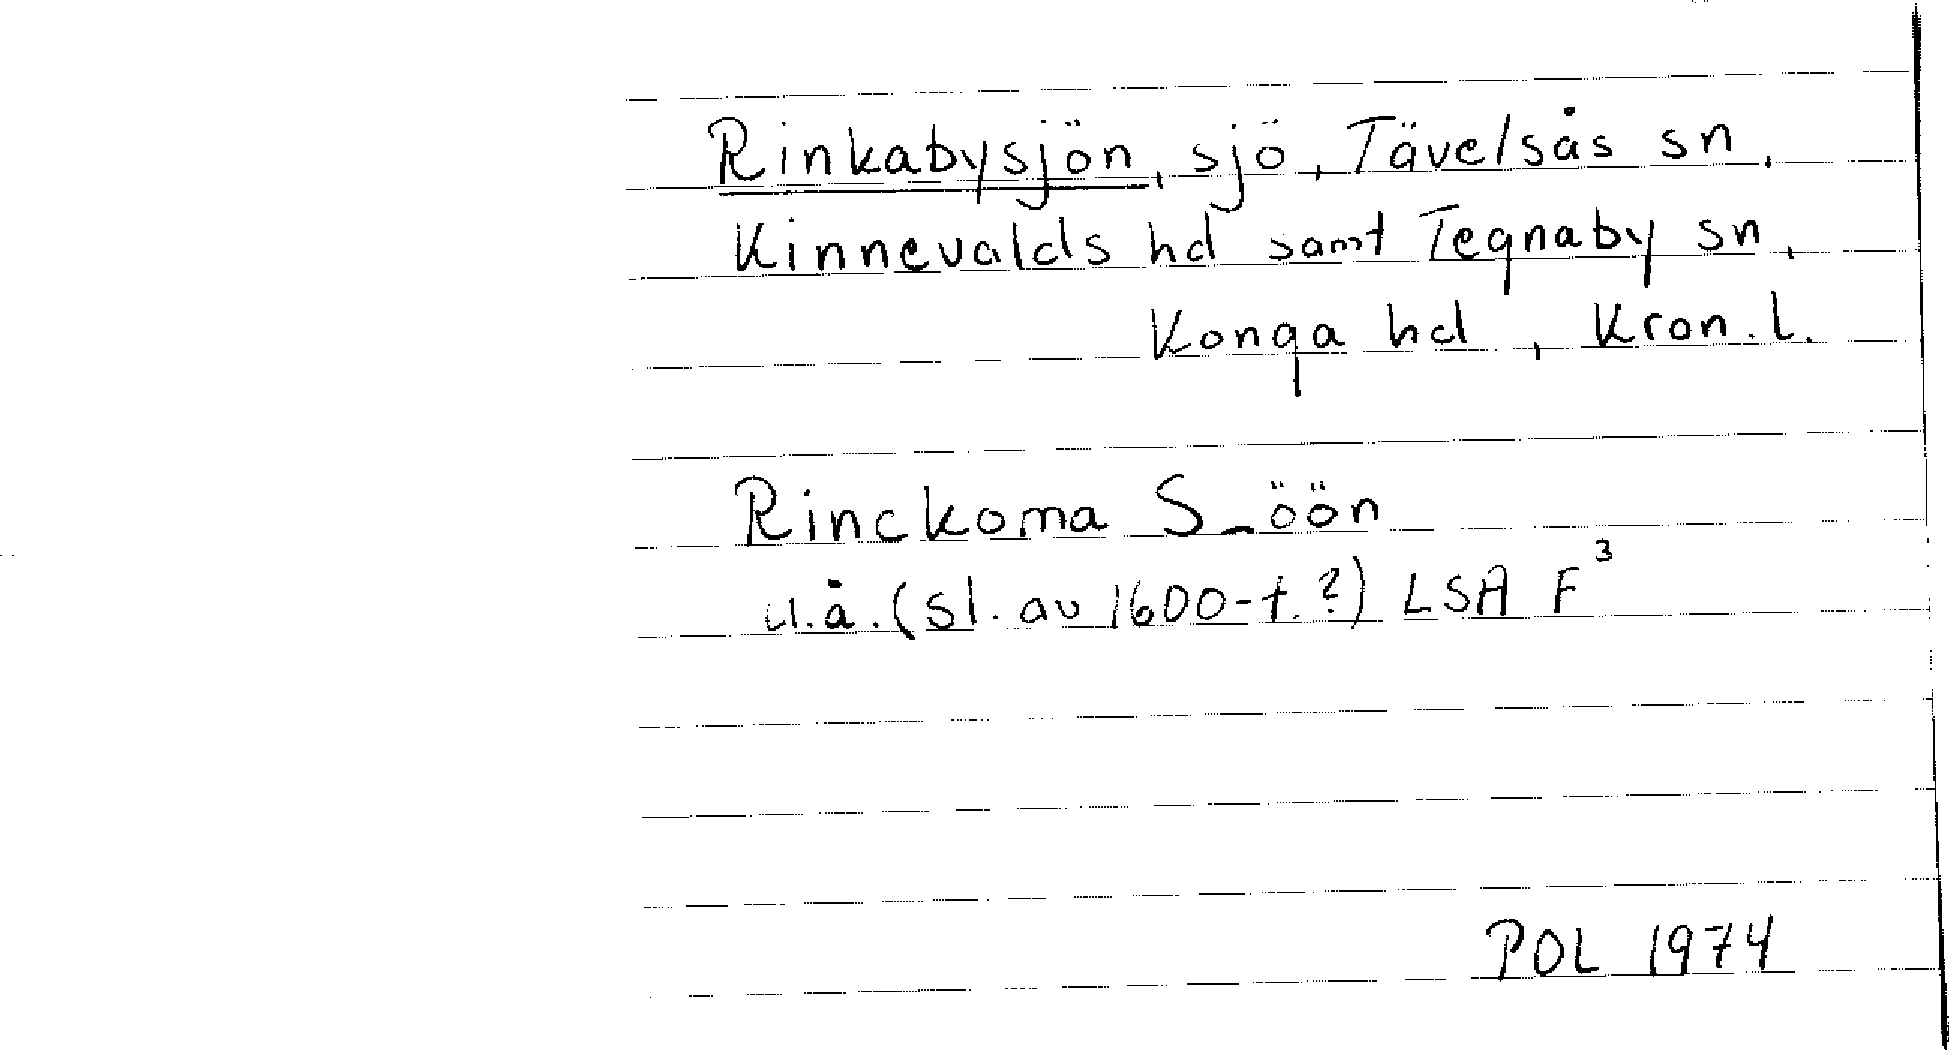 Rinkabysjön, sjö, Tävelsås sn,
Kinnevalds hd samt Tegnaby sn,
Konga hd, Kron. l.
Rinckoma S_öön
u.å. (sl. av 1600-t.?) LSA F³
POL 1974